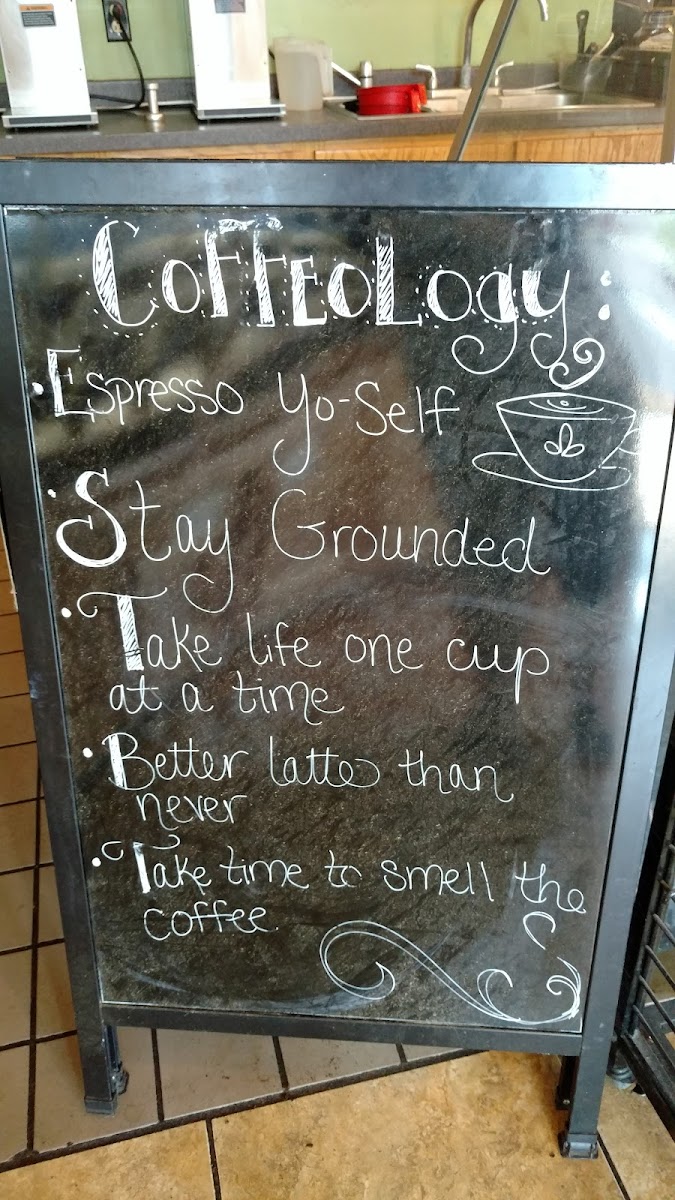 CoFFEOLogy:
• Espresso Yo-Self
• Stay Grounded
• Take life one cup
at a time
• Better latte than
never
• Take time to smell the
coffee.